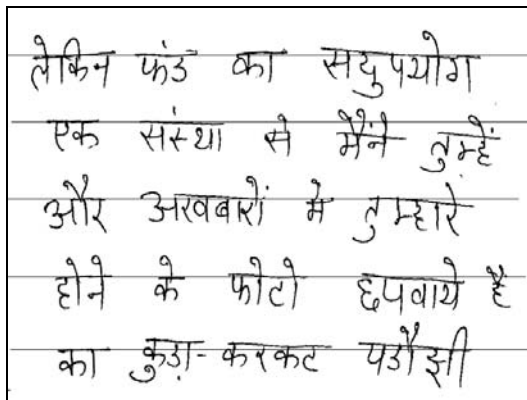 लेकिन फंड का सदुपयोग
एक संस्था से मैंने तुम्हें
और अखबारों मे तुम्हारे
होने के फोटो छपवाये हैं
का कुडा-करकट पडौसी